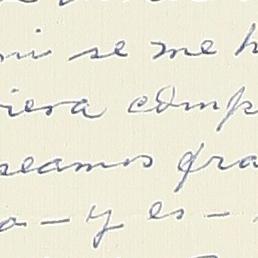 mi se me h
iera comp
seamos gra
a — y es —